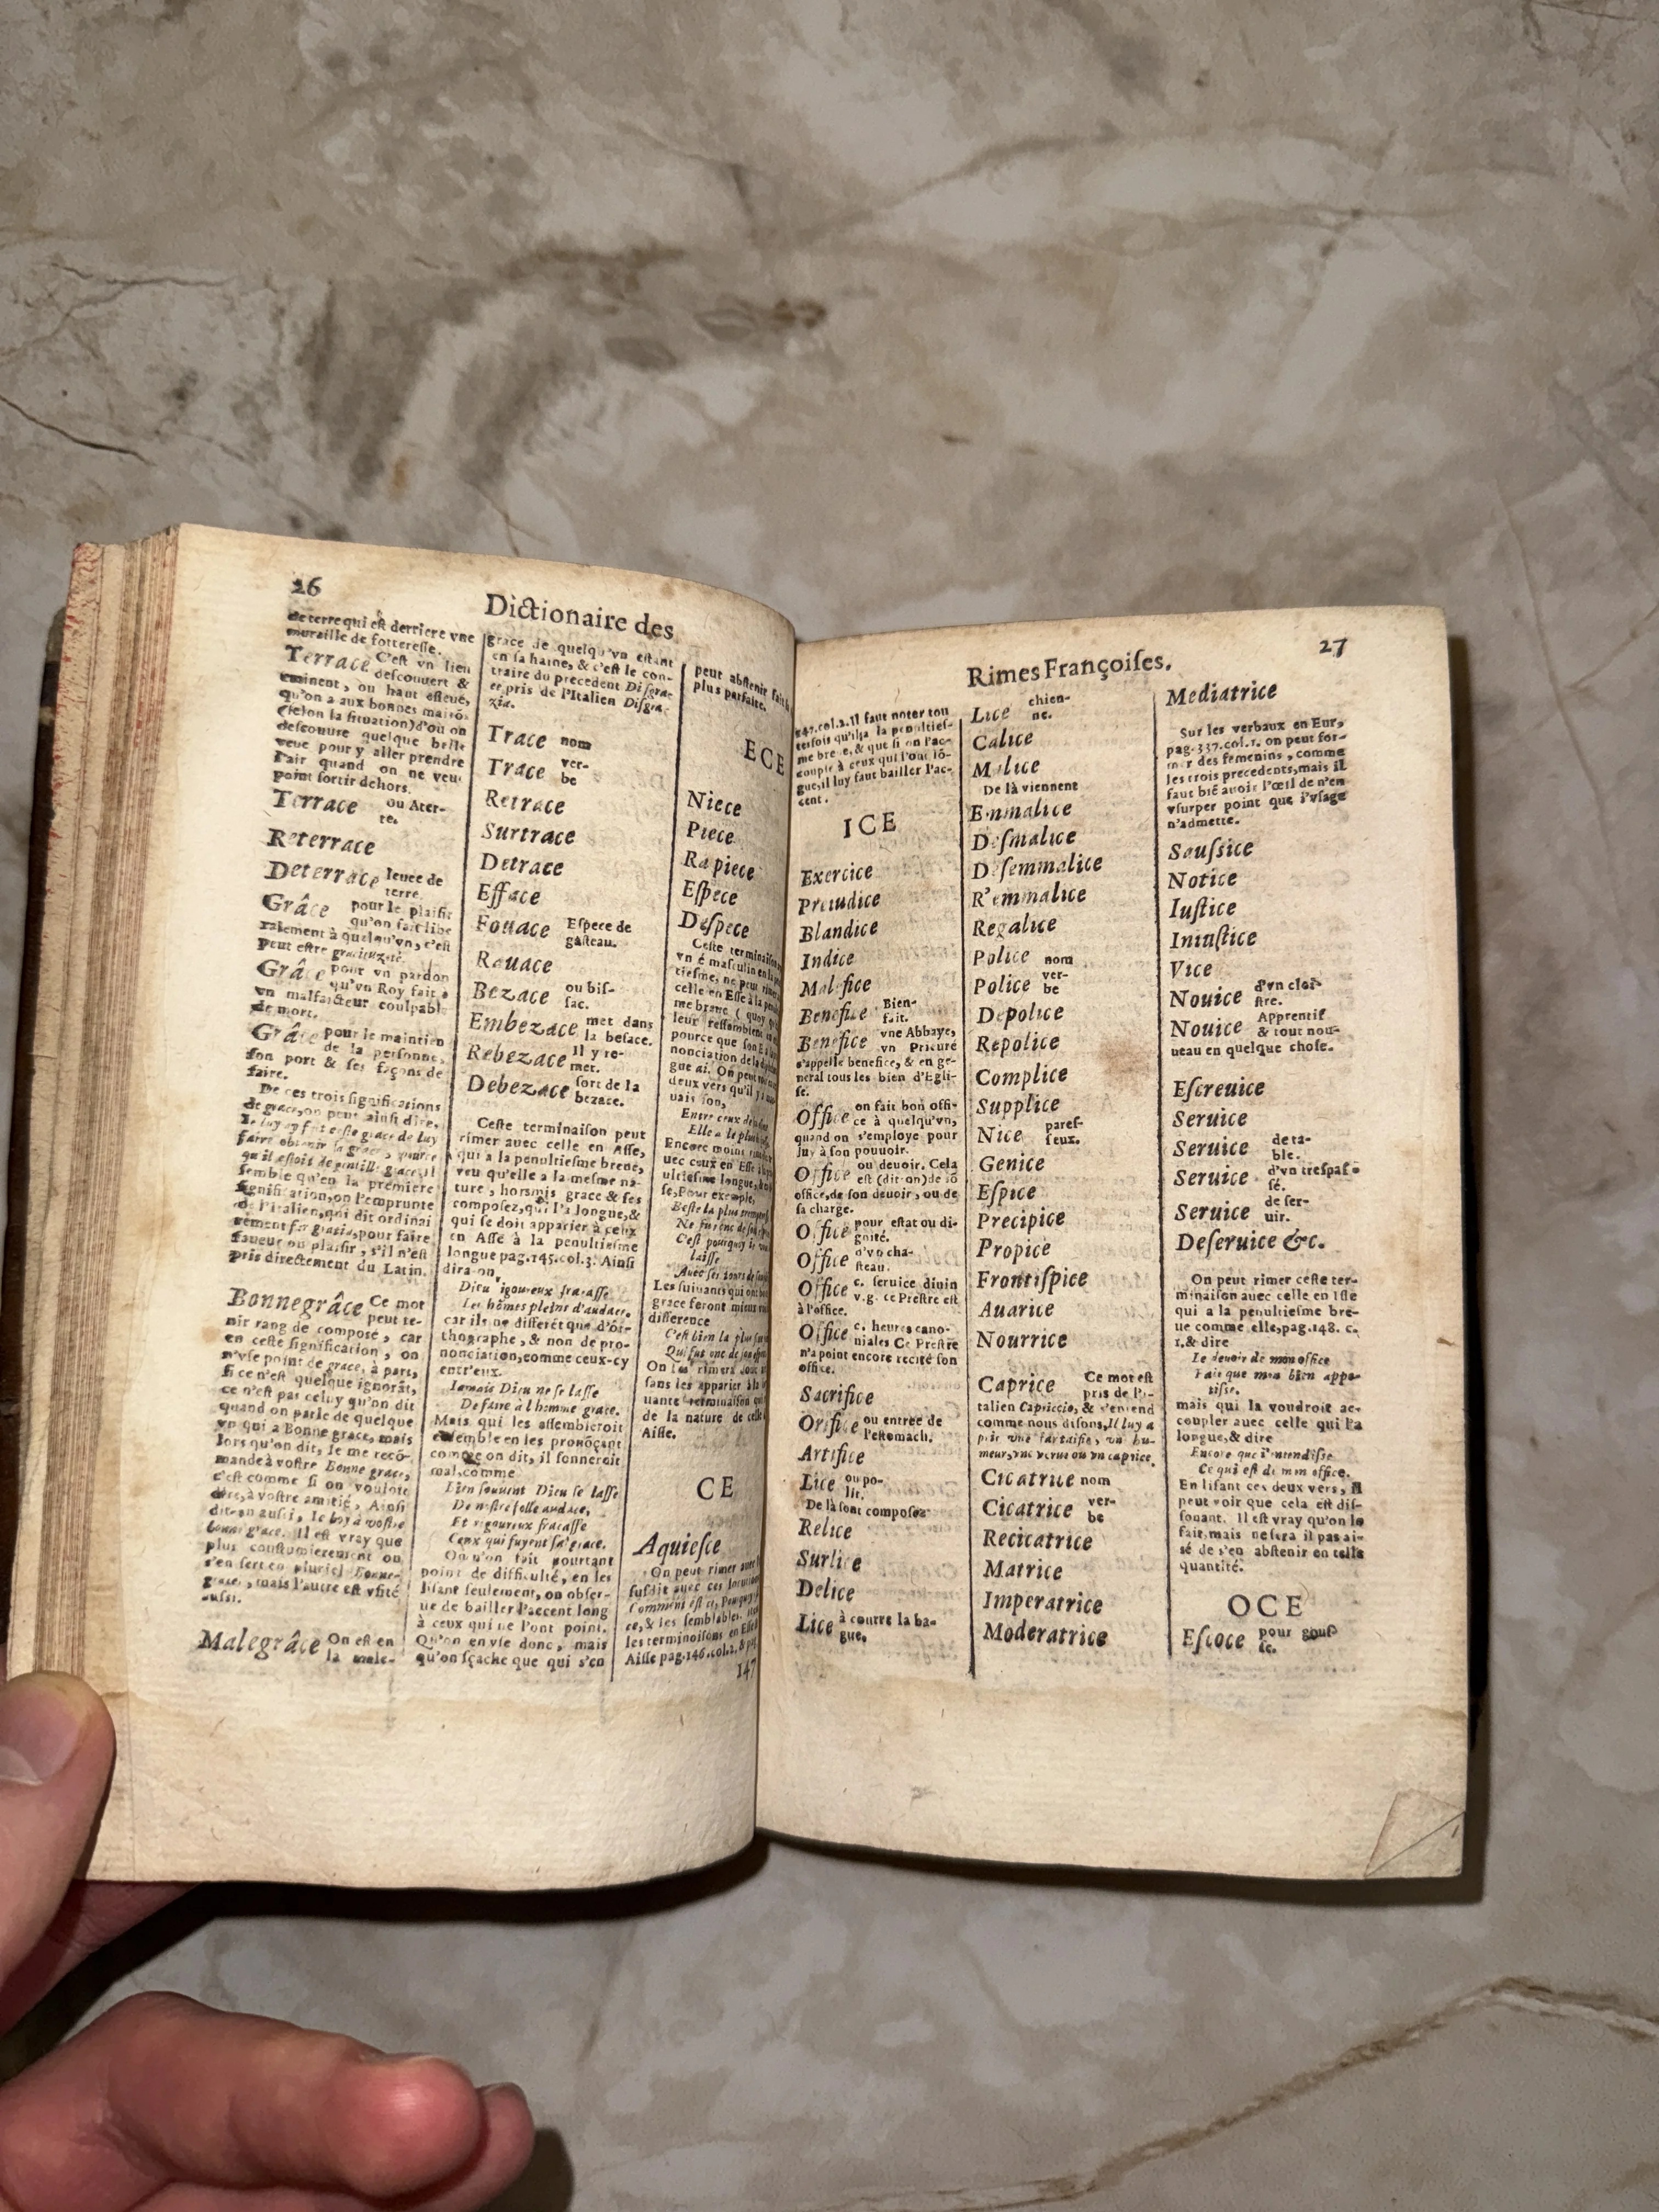 26
Dictionaire des
de terre qui eſt derriere vne
muraille de fortereſſe.
Terrace C'eſt vn lieu
deſcouuert &
eminent, ou haut eſleué,
qu'on a aux bonnes maiſõs
(ſelon la ſituation) d'où on
deſcouure quelque belle
veue pour y aller prendre
l'air quand on ne veut
point ſortir dehors.
Terrace ou Ater-
re.
Reterrace
Deterrace leuee de
terre.
Grâce pour le plaiſir
qu'on fait libe
ralement à quelqu'vn, c'eſt
peut eſtre gracieuzeté.
Grâce pour vn pardon
qu'vn Roy fait à
vn malfaicteur coulpable
de mort.
Grâce pour le maintien
de la perſonne,
ſon port & ſes façons de
faire.
De ces trois ſignifications
de grace, on peut ainſi dire,
Ie luy ay fait ceſte grace de luy
faire obtenir ſa grace, pource
qu'il eſtoit de gentille grace, il
ſemble qu'en la premiere
ſignification, on l'emprunte
de l'Italien, qui dit ordinai
rement far gratia, pour faire
faueur ou plaiſir, s'il n'eſt
pris directement du Latin.
Bonnegrâce Ce mot
peut te-
nir rang de compoſé, car
en ceſte ſignification, on
n'vſe point de grace, à part,
ſi ce n'eſt quelque ignorãt,
ce n'eſt pas celuy qu'on dit
quand on parle de quelque
vn qui a Bonne grace, mais
lors qu'on dit, Ie me recõ-
mande à voſtre Bonne grace,
c'eſt comme ſi on vouloit
dire, à voſtre amitié, Ainſi
dit-on auſſi, Ie boy à voſtre
bonne grace. Il eſt vray que
plus couſtumierement on
s'en ſert en pluriel Bonne-
graces, mais l'autre eſt vſité
auſſi.
Malegrâce On eſt en
la male-
grace de quelqu'vn eſtant
en ſa haine, & c'eſt le con-
traire du precedent Diſgra-
ce pris de l'Italien Diſgra-
zia.
Trace nom
Trace ver-
be
Retrace
Surtrace
Detrace
Efface
Fouace Eſpece de
gaſteau.
Rauace
Bezace ou biſ-
ſac.
Embezace met dans
la beſace.
Rebezace Il y re-
met.
Debezace ſort de la
bezace.
Ceſte terminaiſon peut
rimer auec celle en Aſſe,
qui a la penultieſme breue,
veu qu'elle a la meſme na-
ture, horsmis grace & ſes
compoſez, qui l'a longue, &
qui ſe doit apparier à ceux
en Aſſe à la penultieſme
longue pag. 145. col. 3. Ainſi
dira on,
Dieu rigoureux fracaſſe
Les hõmes pleins d'audace,
car ils ne differēt que d'or-
thographe, & non de pro-
nonciation, comme ceux-cy
entr'eux.
Iamais Dieu ne ſe laſſe
De faire à l'homme grace.
Mais qui les aſſembleroit
enſemble en les pronõçant
comme on dit, il ſonneroit
mal, comme
Bien ſouuent Dieu ſe laſſe
De noſtre folle audace,
Et rigoureux fracaſſe
Ceux qui fuyent ſa grace.
Qu'on fait pourtant
point de difficulté, en les
liſant ſeulement, on obſer-
ue de bailler l'accent long
à ceux qui ne l'ont point.
Qu'on en vſe donc, mais
qu'on ſçache que qui s'en
peut abſtenir
plus parfaite.
ECE
Niece
Piece
Rapiece
Eſpece
Deſpece
Ceſte terminaiſon
vn é maſculin en la
tieſme, ne peut rimer
celle en Eſſe à la
me breue ( quoy
leur reſſemblent
pource que ſon E
nonciation de la
gue ai. On peut
deux vers qu'il y a
uais ſon,
Entre ceux de
Elle a le plus
Encore moins
uec ceux en Eſſe
ultieſme longue,
ſe, Pour exemple,
Beſte la plus
Ne fut onc de
C'eſt pourquoy ie
laiſſe
Auec ſes tours de
Les ſuiuants qui ont
grace ſeront mieux
difference
C'eſt bien la plus
Qui fut onc de ſon
On les rimera
ſans les apparier à la
uante terminaiſon qui
de la nature de celle
Aiſſe.
CE
Aquieſce
On peut rimer auec
ſuſdit auec ces
Comment eſt-ce, Pourquoy
ce, & les ſemblables,
les terminoiſons en Eſſe
Aiſſe pag. 146. col. 2. & pag.
147
27
Rimes Françoiſes.
147. col. 2. Il faut noter tou
tesfois qu'il y a la penultieſ-
me breue, & que ſi on l'ac-
couple à ceux qui l'ont lõ-
gue, il luy faut bailler l'ac-
cent.
ICE
Exercice
Preiudice
Blandice
Indice
Malefice
Benefice Bien-
fait.
Benefice vne Abbaye,
vn Prieuré
s'appelle benefice, & en ge-
neral tous les bien d'Egli-
ſe.
Office on fait bon offi-
ce à quelqu'vn,
quand on s'employe pour
luy à ſon pouuoir.
Office ou deuoir. Cela
eſt (dit on) de ſõ
office, de ſon deuoir, ou de
ſa charge.
Office pour eſtat ou di-
gnité.
Office d'vn cha-
ſteau.
Office c. ſeruice diuin
v.g. ce Preſtre eſt
à l'office.
Office c. heures cano-
niales Ce Preſtre
n'a point encore recité ſon
office.
Sacrifice
Orifice ou entree de
l'eſtomach.
Artifice
Lice ou po-
lit.
De là ſont compoſez
Relice
Surlice
Delice
Lice à courre la ba-
gue.
Lice chien-
ne.
Calice
Malice
De là viennent
Enmalice
Deſmalice
Deſemmalice
R'emmalice
Regalice
Police nom
Police ver-
be
Depolice
Repolice
Complice
Supplice
Nice pareſ-
ſeux.
Genice
Eſpice
Precipice
Propice
Frontiſpice
Auarice
Nourrice
Caprice Ce mot eſt
pris de l'I-
talien Capriccio, & s'entend
comme nous diſons, Il luy a
pris vne fantaiſie, vn hu-
meur, vne verue ou vn caprice.
Cicatrice nom
Cicatrice ver-
be
Recicatrice
Matrice
Imperatrice
Moderatrice
Mediatrice
Sur les verbaux en Eur,
pag. 337. col. 1. on peut for-
mer des femenins, comme
les trois precedents, mais il
faut biē auoir l'œil de n'en
vſurper point que l'vſage
n'admette.
Sauſsice
Notice
Iuſtice
Iniuſtice
Vice
Nouice d'vn cloi-
ſtre.
Nouice Apprentif
& tout nou-
ueau en quelque choſe.
Eſcreuice
Seruice
Seruice de ta-
ble.
Seruice d'vn treſpaſ-
ſé.
Seruice de ſer-
uir.
Deſeruice &c.
On peut rimer ceſte ter-
minaiſon auec celle en Iſſe
qui a la penultieſme bre-
ue comme elle, pag. 148. c.
1. & dire
Le deuoir de mon office
Fait que mon bien appe-
tiſſe.
mais qui la voudroit ac-
coupler auec celle qui l'a
longue, & dire
Encore que i'entendiſſe
Ce qui eſt de mon office.
En liſant ces deux vers, il
peut voir que cela eſt diſ-
ſonant. Il eſt vray qu'on le
fait, mais ne ſera il pas ai-
ſé de s'en abſtenir en telle
quantité.
OCE
Eſcoce pour gouſ-
ſe.